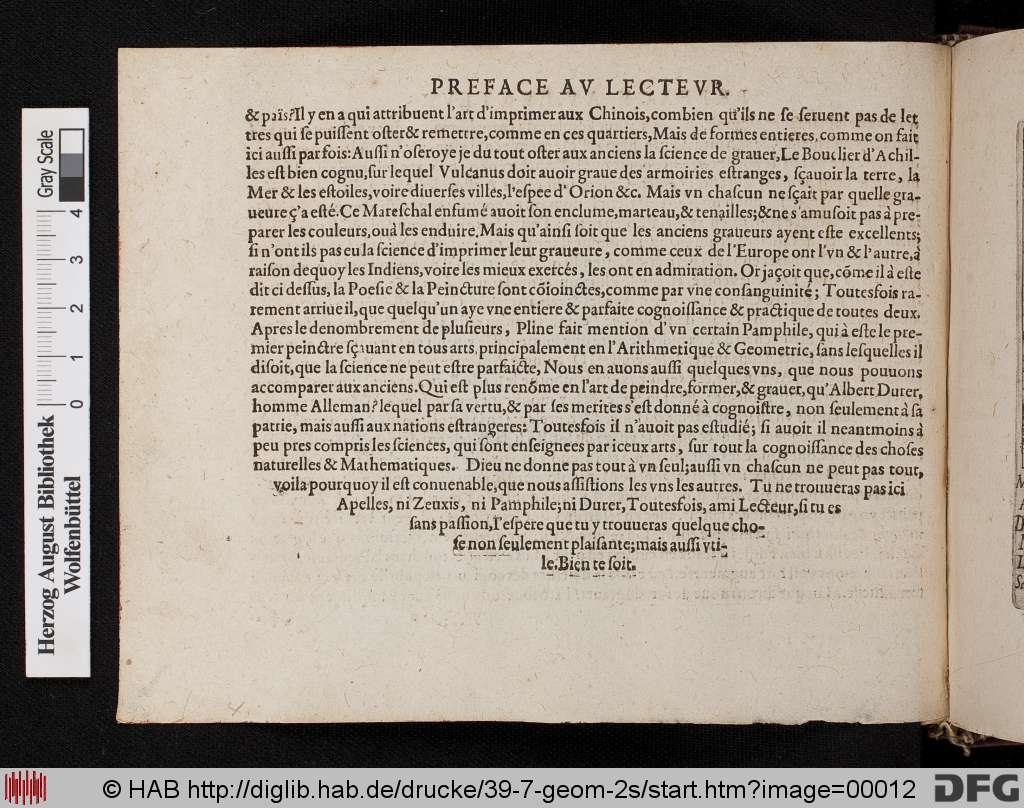 PREFACE AV LECTEVR.
& païs? Il y en a qui attribuent l'art d'imprimer aux Chinois, combien qu'ils ne se seruent pas de let
tres qui se puissent oster & remettre, comme en ces quartiers, Mais de formes entieres, comme on fait
ici aussi par fois: Aussi n'oseroye je du tout oster aux anciens la science de grauer, Le Bouclier d'Achil-
les est bien cognu, sur lequel Vulcanus doit auoir graue des armoiries estranges, sçauoir la terre, la
Mer & les estoiles, voire diuerses villes, l'espee d'Orion &c. Mais vn chascun ne sçait par quelle gra-
ueure ç'a esté. Ce Mareschal enfumé auoit son enclume, marteau, & tenailles; & ne s'amusoit pas à pre-
parer les couleurs, ou à les enduire, Mais qu'ainsi soit que les anciens graueurs ayent este excellents;
si n'ont ils pas eu la science d'imprimer leur graueure, comme ceux de l'Europe ont l'vn & l'autre, à
raison dequoy les Indiens, voire les mieux exercés, les ont en admiration. Or jaçoit que, cõme il à este
dit ci dessus, la Poesie & la Peincture sont cõioinctes, comme par vne consanguinité; Toutesfois ra-
rement arriue il, que quelqu'un aye vne entiere & parfaite cognoissance & practique de toutes deux.
Apres le denombrement de plusieurs, Pline fait mention d'vn certain Pamphile, qui à este le pre-
mier peinctre sçauant en tous arts, principalement en l'Arithmetique & Geometrie, sans lesquelles il
disoit, que la science ne peut estre parfaicte, Nous en auons aussi quelques vns, que nous pouuons
accomparer aux anciens. Qui est plus renõme en l'art de peindre, former, & grauer, qu'Albert Durer,
homme Alleman? lequel par sa vertu, & par ses merites s'est donné à cognoistre, non seulement à sa
patrie, mais aussi aux nations estrangeres: Toutesfois il n'auoit pas estudié; si auoit il neantmoins à
peu pres compris les sciences, qui sont enseignees par iceux arts, sur tout la cognoissance des choses
naturelles & Mathematiques. Dieu ne donne pas tout à vn seul; aussi vn chascun ne peut pas tout,
voila pourquoy il est conuenable, que nous assistions les vns les autres. Tu ne trouueras pas ici
Apelles, ni Zeuxis, ni Pamphile; ni Durer, Toutesfois, ami Lecteur, si tu es
sans passion, I'espere que tu y trouueras quelque cho-
se non seulement plaisante; mais aussi vti-
le. Bien te soit.
Herzog August Bibliothek
Wolfenbüttel
0 1 2 3 4
Gray Scale
© HAB http://diglib.hab.de/drucke/39-7-geom-2s/start.htm?image=00012
DFG